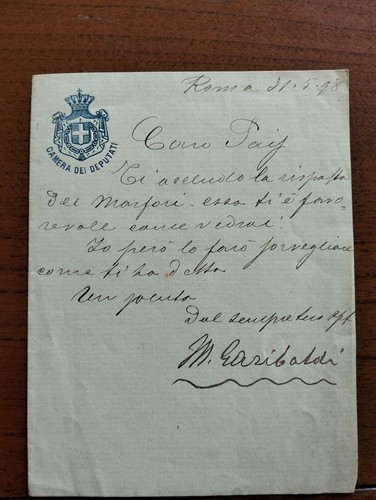 Roma 31.5.98
CAMERA DEI DEPUTATI
Caro
Ti accludo la risposta
del Morfori essa ti è favo-
revole come vedrai!
Io però lo farò sorvegliare
come ti ho detto
Dal sempre tuo aff
M. Garibaldi